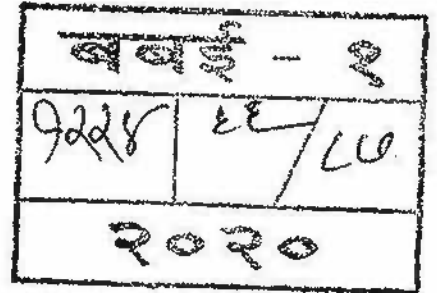 बबई - १
१२२४ ६६/८७
२०२०